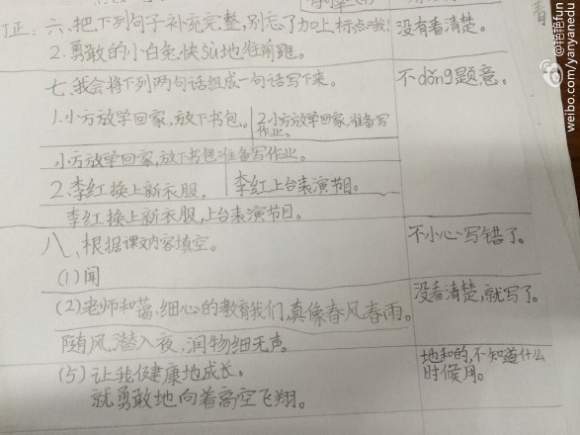 订正：六、把下列句子补充完整，别忘了加上标点哦！
没有看清楚。
2.勇敢的小白兔，快sù地往前跑。
七、我会将下列两句话组成一句话写下来。
不dǒng题意。
1.小方放学回家，放下书包。
2.小方放学回家，准备写作业。
小方放学回家，放下书包准备写作业。
2.李红换上新衣服，
李红上台表演节目。
李红换上新衣服，上台表演节目。
八、根据课文内容填空。
不小心写错了。
(1)闻
(2)老师和蔼，细心的教育我们，真像春风春雨。
没看清楚，就写了。
随风潜入夜，润物细无声。
(5)让我健康地成长。
地和的，不知道什么时候用。
就勇敢地向着高空飞翔。
weibo.com/yanyanedu